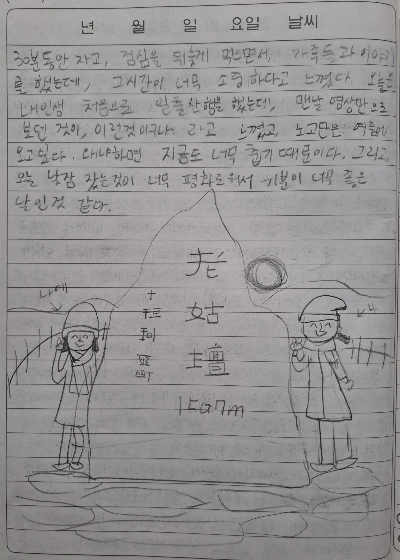 년 월 일 요일 날씨
30분동안 자고, 점심을 뒤늦게 먹으면서, 가족들과 이야기
를 했는데, 그시간이 너무 소중하다고 느꼈다. 오늘은
내인생 처음으로 일출산행을 했는데, 맨날 영상만으로
보던 것이, 이런것이구나 라고 느꼈고, 노고단은 여름에
오고싶다. 왜냐하면 지금도 너무 춥기 때문이다. 그리고,
오늘 낮잠 잤는것이 너무 평화로워서 기분이 너무 좋은
날인것 같다.
老
姑
壇
1507m